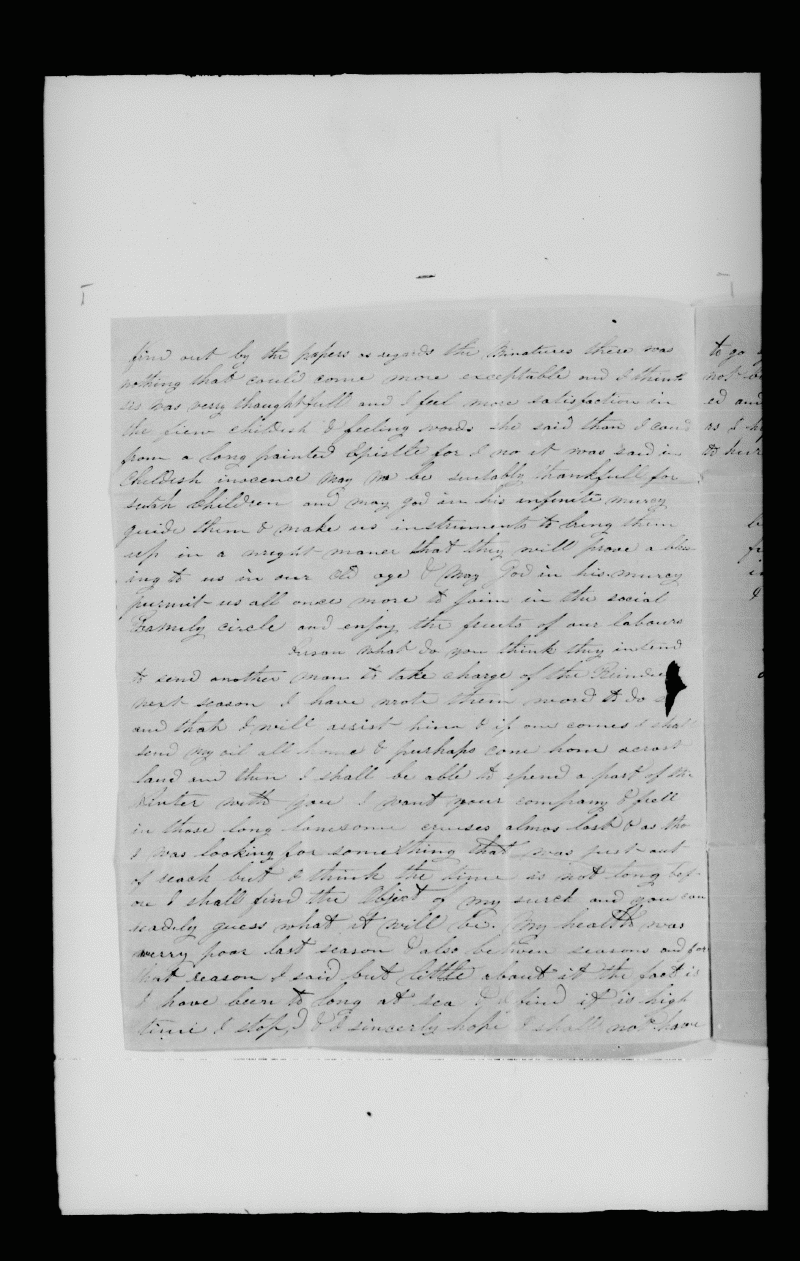 find out by the papers as regards the Minatures there was
nothing that could come more exceptable and I think
was verry thoughtfull and I feel more satisfaction in
the fiew childish & feeling words she said than I could
from a long painted Epistle for I no it was said in
Childish inocence may we be suitably thankfull for
sutch Children and may god in his infinite murcy
guide them & make us instruments to bring them
up in a wright maner that they will prove a bless
ing to us in our old age & may God in his murcy
purmit us all once more to join in the social
Family circle and enjoy the fruits of our labours
Susan what do you think they intend
to send another man to take charge of the Reindee
next season I have wrote them word to do
and that I will assist him & if one comes I shall
send my oil all home & perhaps come hom acrost
land and then I shall be able to spend a part of the
Winter with you I want your company & feell
in those long lonesome cruises almos lost & as tho
I was looking for something that was just out
of reach but I think the time is not long bef
ore I shall find the Object of my surch and you can
readily guess what it will be. My health was
verry poor last season & also between seasons and for
that reason I said but little about it the fact is
I have been to long at sea & I find it is high
time I stop,d & I sincerly hope I shall not have
to go
not b
ed and
as I
to hur